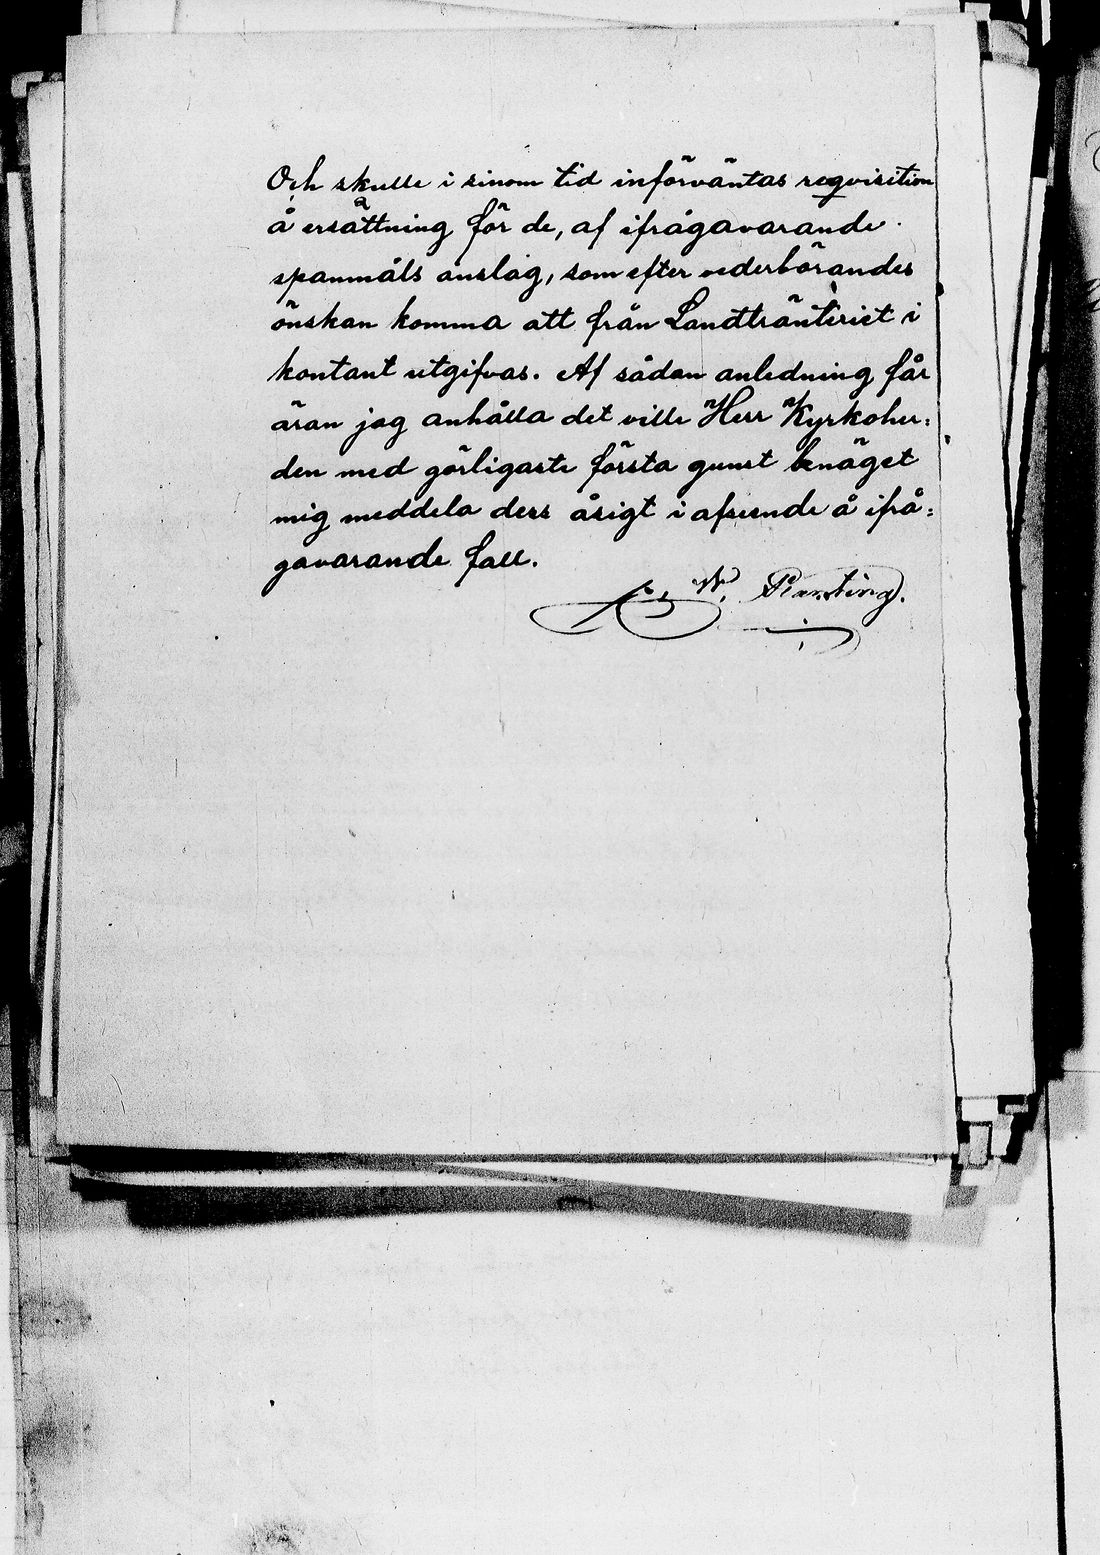 Och skulle i sinom tid införväntas reqvisition
å ersättning för de, af ifrågavarande
spanmåls anslag, som efter vederbörandes
önskan komma att från Landtränteriet i
kontant utgifvas. Af sådan anledning får
äran jag anhålla det ville Herr Kyrkoher=
den med görligaste första gunst benäget
mig meddela dess åsigt i afseende å ifrå=
gavarande fall.